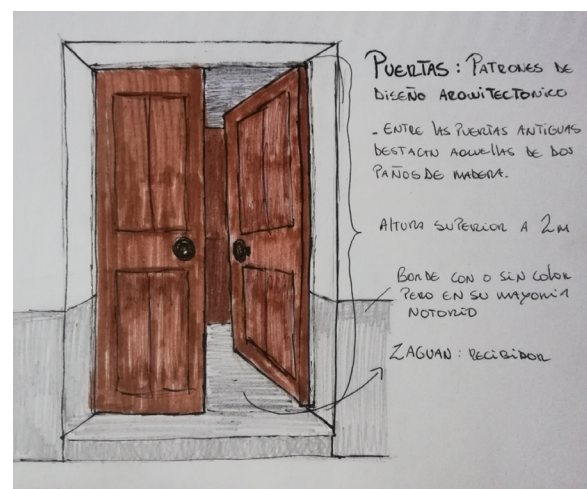 PUERTAS : PATRONES DE
DISEÑO ARQUITECTONICO
- ENTRE LAS PUERTAS ANTIGUAS
DESTACAN AQUELLAS DE DOS
PAÑOS DE MADERA.
ALTURA SUPERIOR A 2M
BORDE CON O SIN COLOR
PERO EN SU MAYORIA
NOTORIO
ZAGUAN : RECIBIDOR